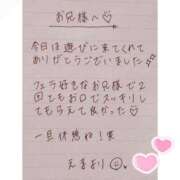 お兄様へ♡
今日は遊びに来てくれて
ありがとうございました♪
フェラ好きなお兄様で2
回てもお口でスッキリし
てもらえて良かった♡
一旦休憩ね!笑
えまより☺